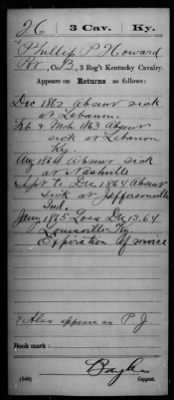 26 | 3 Cav. | Ky.
Phillip P Howard
Pvt, Co. B, 3 Reg't Kentucky Cavalry.
Appears on
Returns as follows:
Dec 1862 Absent sick
at Lebanon.
Feb & Mch 1863 Absent
sick at Lebanon
Ky
Aug 1864 Absent sick
at Nashville
Apr to Dec 1864 Absent
sick at Jeffersonville
Ind.
Jany 1865 Loss Dec 13.64
Louisville Ky
Expiration of service
* Also appears as P. J
Book mark:
(546)
Copyist.